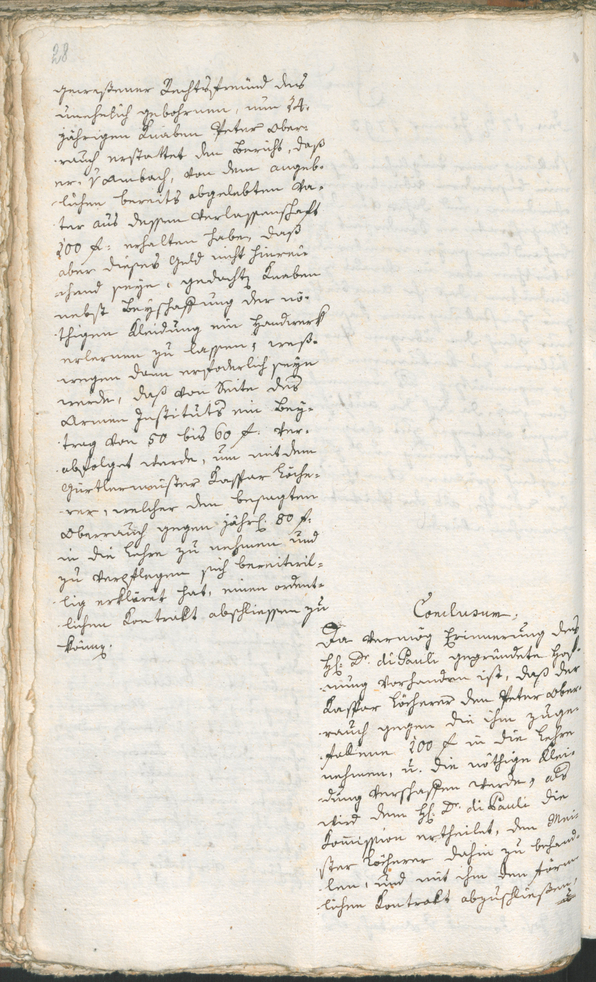 28
gewesener Rechtsfreund des
unehelich gebohrnen, nun 14.
jährigen Knaben Peter Ober-
rauch erstattet den Bericht, daß
er v. Ambach, von dem angeb-
lichen bereits abgelebten Va-
ter aus dessen Verlassenschaft
100 f: erhalten haben, daß
aber dieses Geld nicht hinrei-
chend seye, gedachten Knaben
nebst Beyschaffung der nö-
thigen Kleidung ein Handwerk
erlernen zu lassen; weß-
wegen dann erfoderlich seyn
werde, daß von Seite des
Armen Instituts ein Bey-
trag von 50 bis 60 f. ver-
abfolget werde, um mit dem
Gürtlermeister Kaspar Löche-
rer, welcher den besagten
Oberrauch gegen jährl: 80 f.
in die Lehre zu nehmen und
zu verpflegen sich bereitwil-
lig erkläret hat, einen ordent-
lichen Kontrakt abschliessen zu
könne.
Conclusum;
Da vermög Erinnerung des
H: Dr. di Pauli gegründete Hof-
nung vorhanden ist, daß der
Kaspar Löcherer den Peter Ober-
rauch gegen die ihm zuge-
fallene 100 f in die Lehre
nehmen, u. die nöthige Klei-
dung verschaffen werde, als
wird dem H: Dr. di Pauli die
Kommission ertheilet, den Mei-
ster Löcherer dahin zu behand-
len, und mit ihm den förm-
lichen Kontrakt abzuschließen,